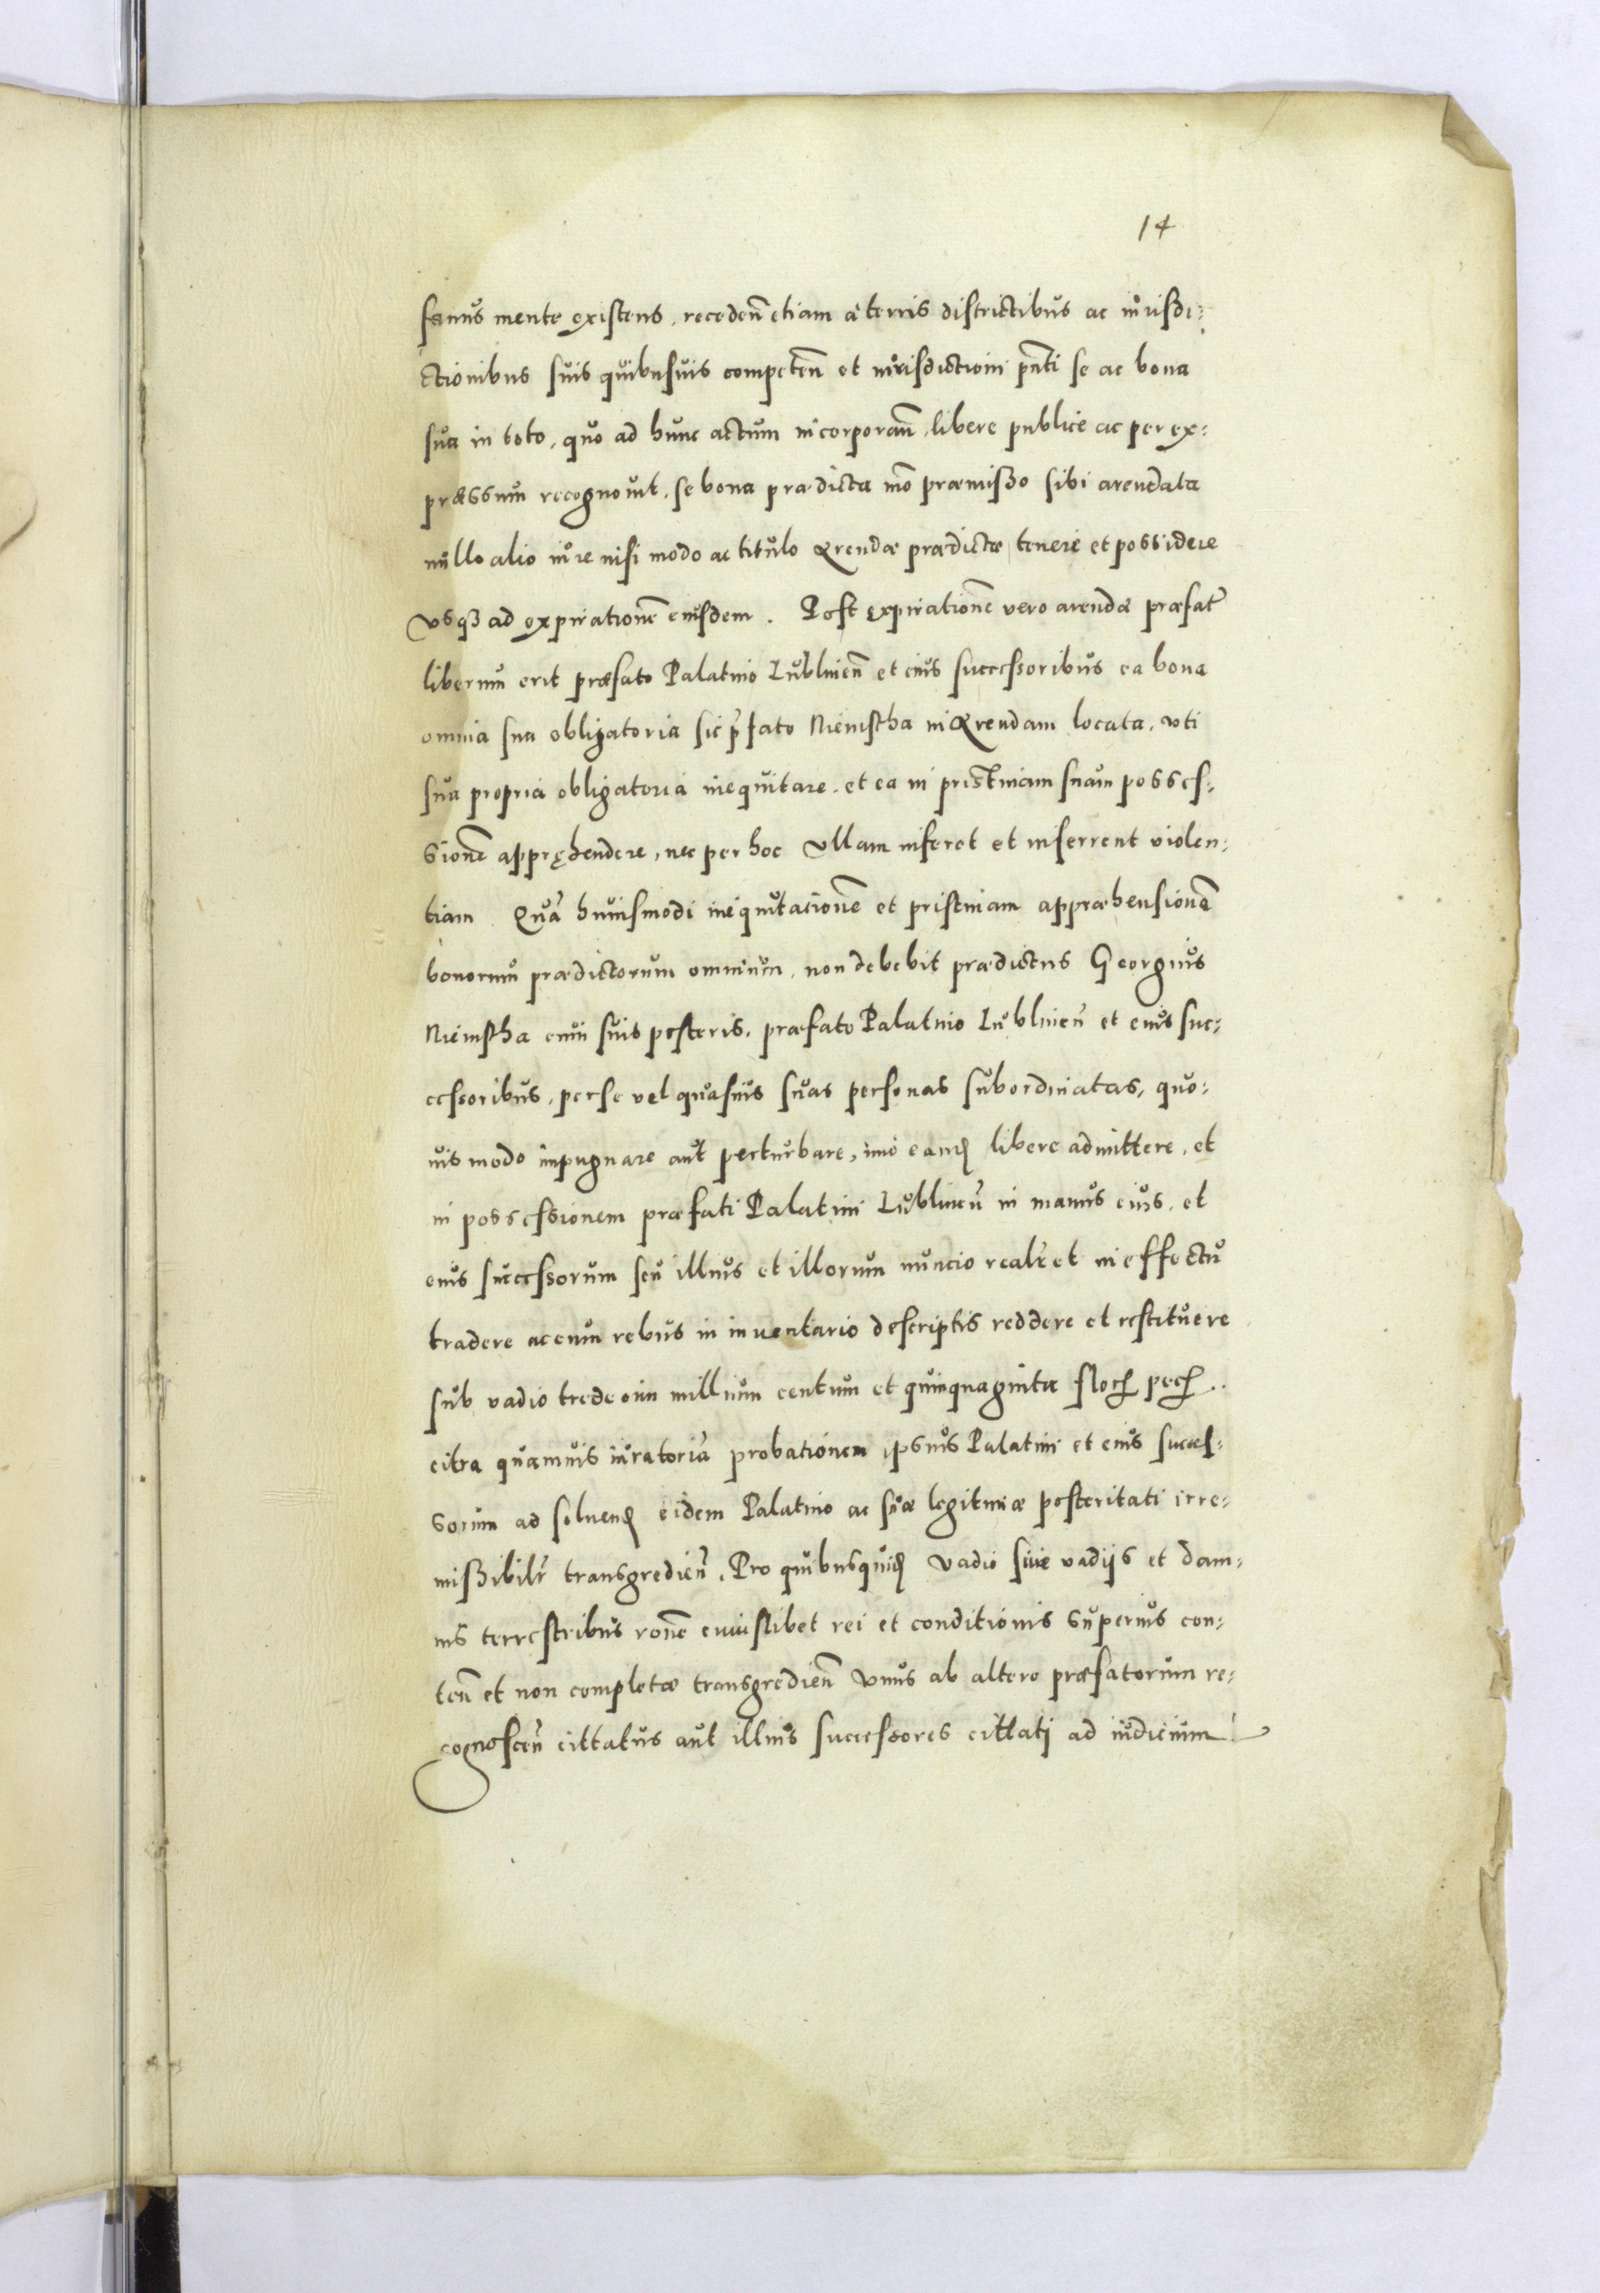 14
sanus mente existens, receden̄ etiam à terris districtibus ac iurisdi-
ctionibus suis quibusuis competen̄ et iurisdictioni pn̄ti se ac bona
sua in toto, quo ad hunc actum incorporan̄, libere publice ac per ex-
præssum recognouit, se bona prædicta mō præmisso sibi arendata
nullo alio iure nisi modo ac titulo Arendæ prædictæ, tenere et possidere
vsqȝ ad expirationē eiusdem. Post expirationē vero arendæ præfat̄
liberum erit præfato Palatino Lublinen̄ et eius successoribus ea bona
omnia sua obligatoria sic p̄fato Niemstha in Arendam locata, vti
sua propria obligatoria inequitare, et ea in pristinam suam posses-
sionē apprȩhendere, nec per hoc vllam inferet et inferrent violen-
tiam. Quā huiusmodi inequitationē et pristinam appræhensionē
bonorum prædictorum omnium, non debebit prædictus Georgius
Niemstha cum suis posteris, præfato Palatino Lublinen̄ et eius suc-
cessoribus, per se vel quasuis suas personas subordinatas, quo-
uis modo impugnare aut perturbare, imò eand̄ libere admittere, et
in possessionem præfati Palatini Lublinen̄ in manus eius, et
eius successorum seu illius et illorum nuncio realr̄ et in effectu
tradere ac cum rebus in inuentario descriptis reddere et restituere
sub vadio tredecim millium centum et quinquaginta floꝝ pecꝝ.
citra quamuis iuratoriā probationem ipsius Palatini et eius succes-
sorum ad soluend̄ eidem Palatino ac suæ legitimæ posteritati irre-
missibilr̄ transgredien̄. Pro quibusquid̄ vadio siue vadijs et dam-
nis terrestribus ronē cuiuslibet rei et conditionis superius con-
ten̄ et non completæ transgredien̄ vnus ab altero præfatorum re-
cognoscen̄ cittatus aut illius successores cittati ad iudicium